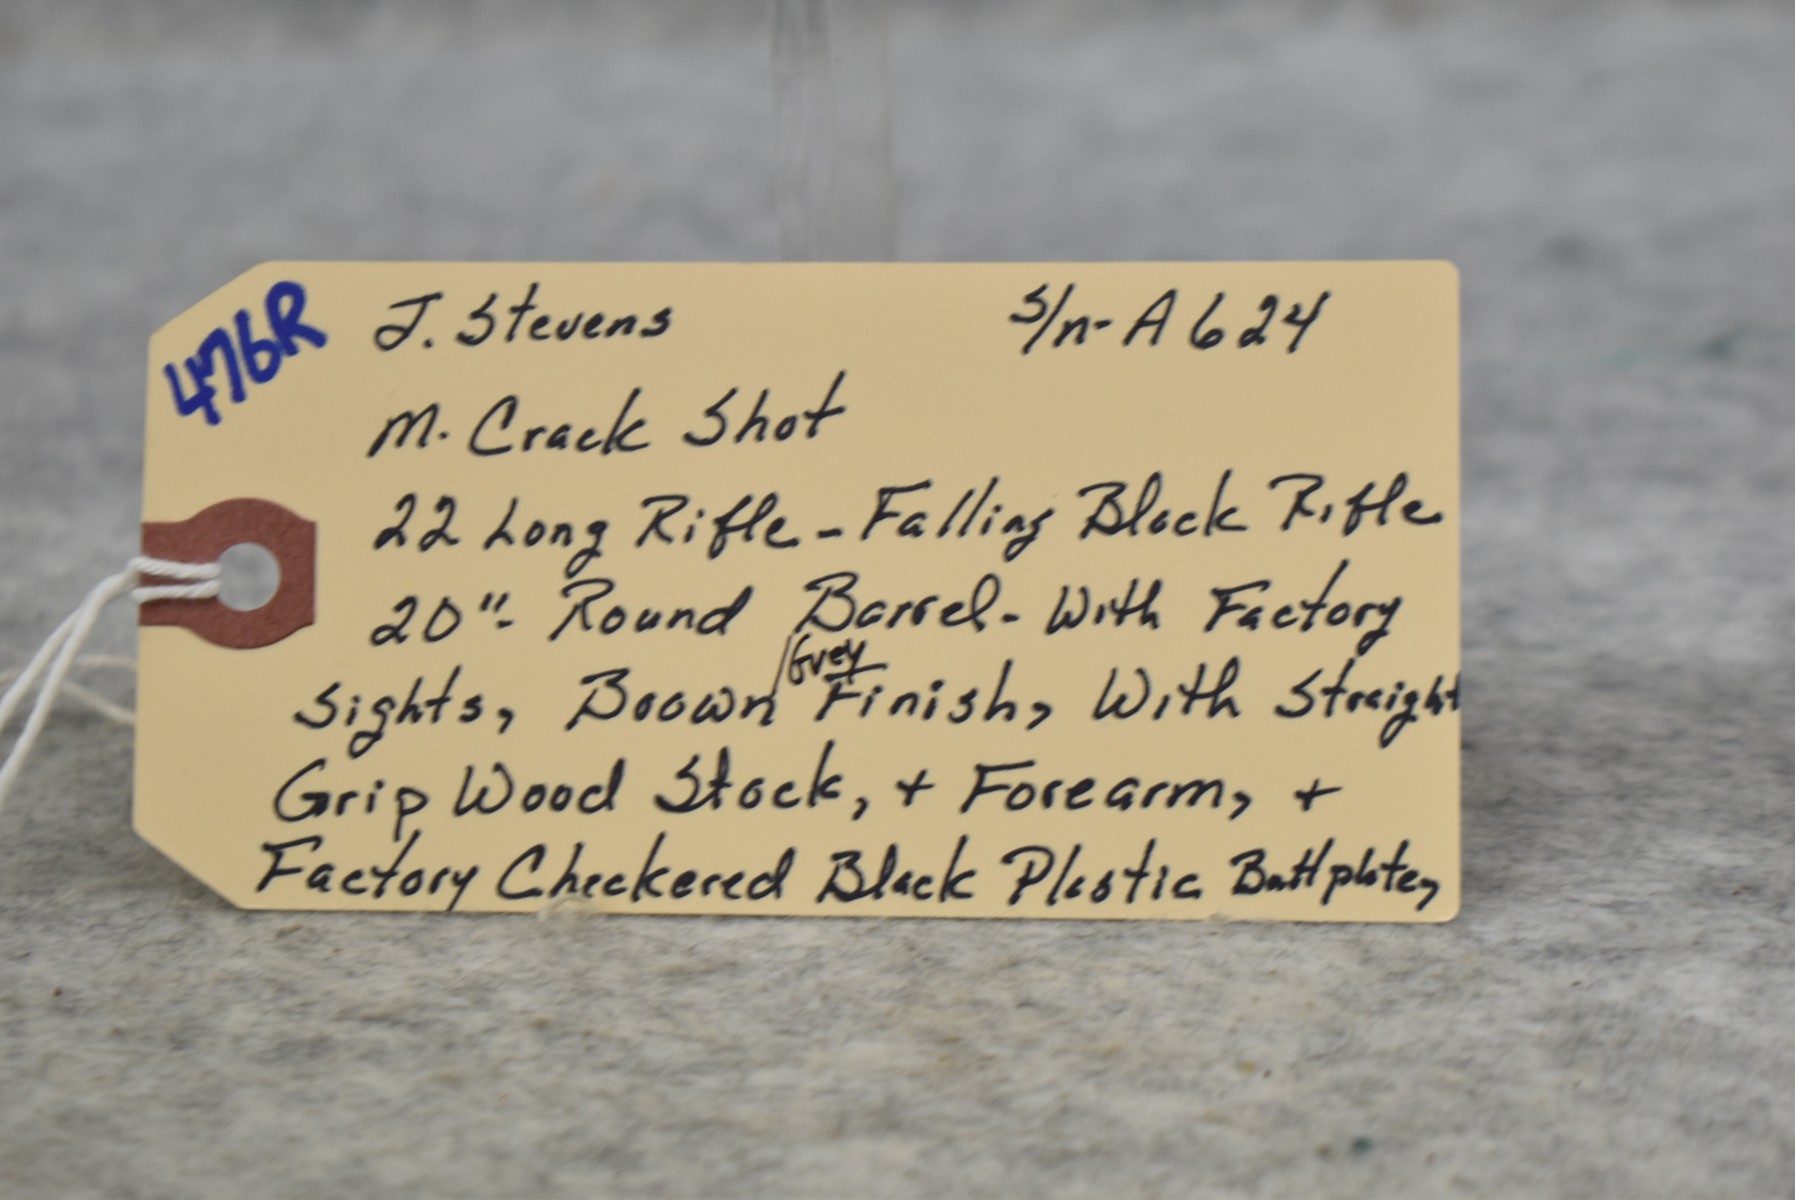 476R
J. Stevens S/n- A624
M. Crack Shot
22 Long Rifle - Falling Block Rifle
20"- Round Barrel - With Factory
Sights, Brown/Grey Finish, With Straight
Grip Wood Stock, + Forearm, +
Factory Checkered Black Plastic Buttplate,